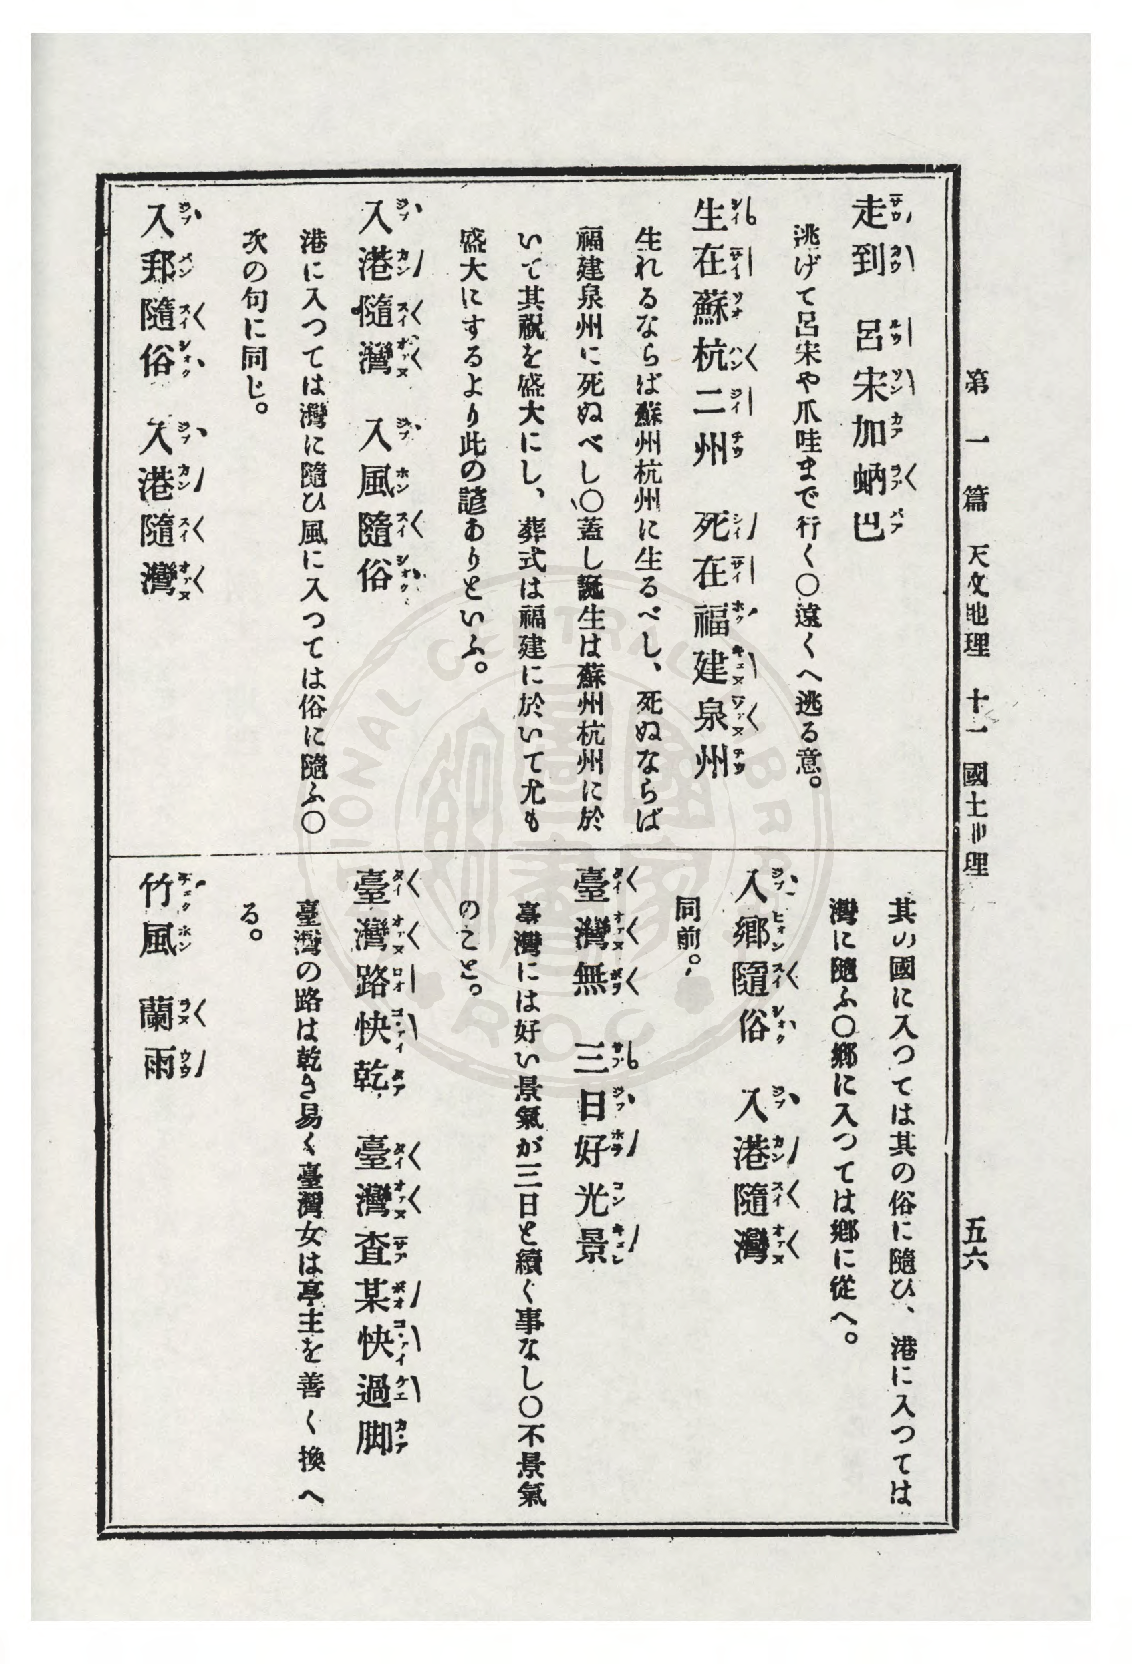 第一篇 天文地理 十一 國土 地理 五六
走到 呂宋加蚋巴
逃げて呂宋や爪哇まで行く〇遠くへ逃る意。
生在蘇杭二州 死在福建泉州
生れるならば蘇州杭州に生るべし、死ぬならば
福建泉州に死ぬべし〇蓋し誕生は蘇州杭州に於
いて其祝を盛大にし、葬式は福建に於いて尤も
盛大にするより此の諺ありといふ。
入港隨灣 入風隨俗
港に入つては灣に隨ひ風に入つては俗に隨ふ〇
次の句に同じ。
入郢隨俗 入港隨灣
其の國に入つては其の俗に隨ひ、港に入つては
灣に隨ふ〇鄉に入つては鄉に從へ。
入鄉隨俗 入港隨灣
同前。
臺灣無 三日好光景
臺灣には好い景氣が三日と續く事なし〇不景氣
のこと。
臺灣路快乾 臺灣查某快過脚
臺灣の路は乾き易く臺灣女は亭主を善く換へ
る。
竹風 蘭雨
NATIONAL CENTRAL LIBRARY
國家圖書館
R.O.C